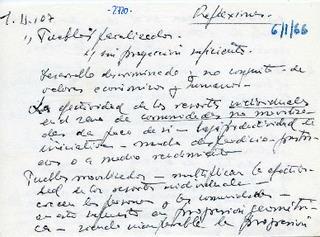 1. 11. 107
-2320-
Reflexiones.
6/1/66
1) Pueblos paralizados.
y sin proyección suficiente.
Desarrollo discriminado y no conjunto de
valores económicos y humanos.
La efectividad de los resortes individuales
en el seno de comunidades no moviliza-
das da poco de sí – baja productividad de
iniciativas – mucho desperdicio –
a medio rendimiento
Pueblos movilizados – multiplican la efectivi-
dad de los resortes individuales –
crecen las personas y las comunidades –
en este supuesto en proporción geométri-
ca – siendo la proporción